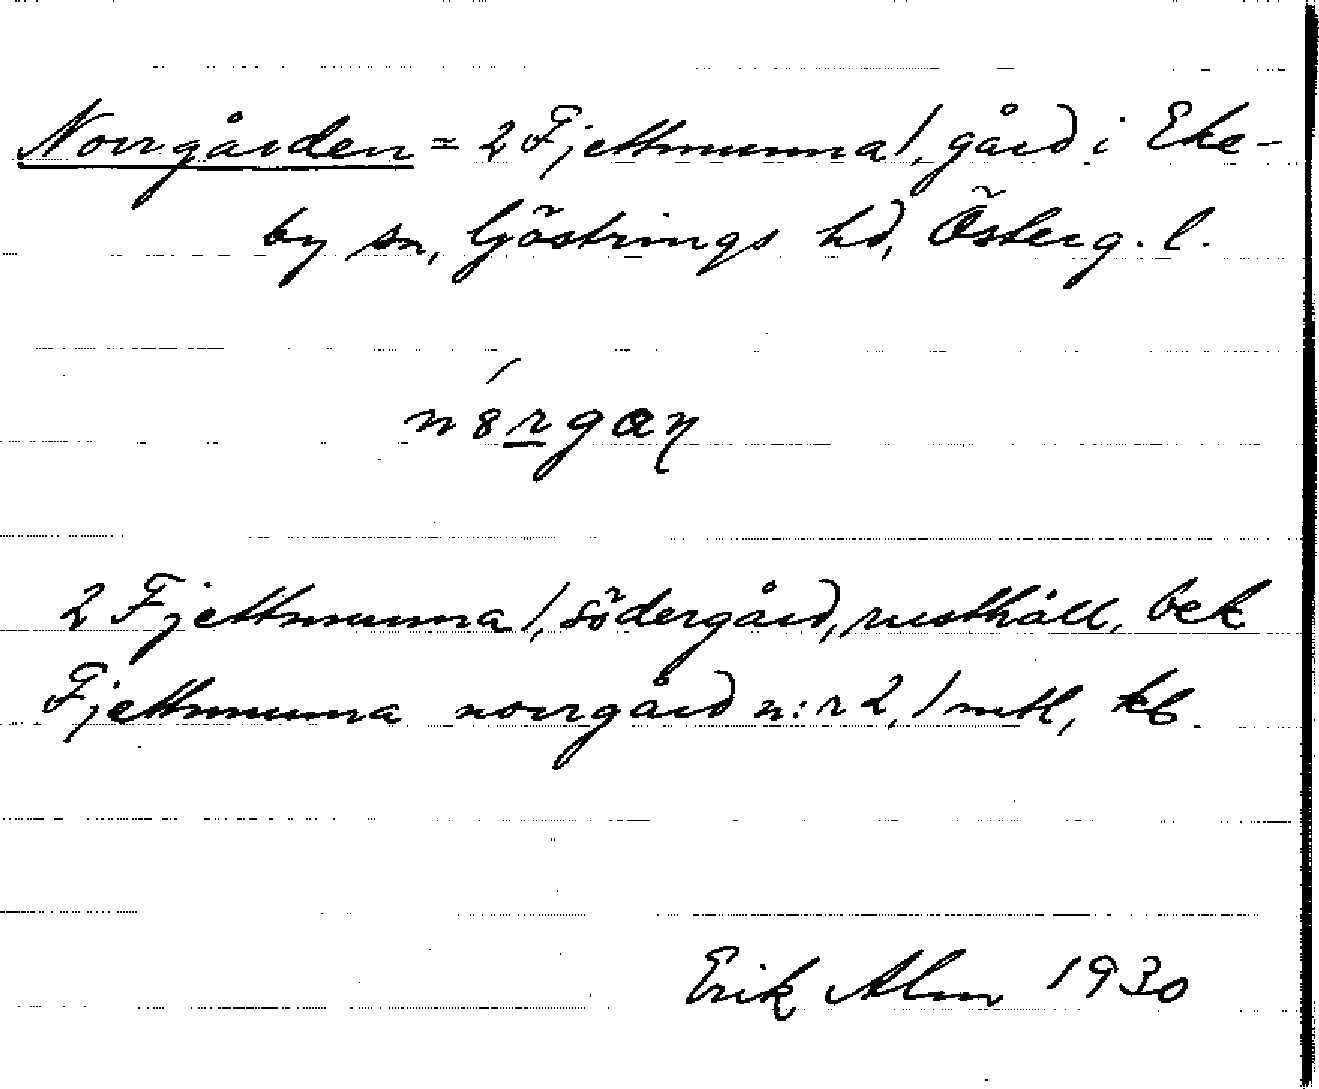 Norrgården = 2 Fjettmunna 1, gård i Eke-
by sn, Göstrings hd, Österg. l.
2 Fjettmunna 1, södergård, rusthåll, bek
Fjettmunna norrgård n:r 2, 1 mtl, kb.
Erik Alm 1930